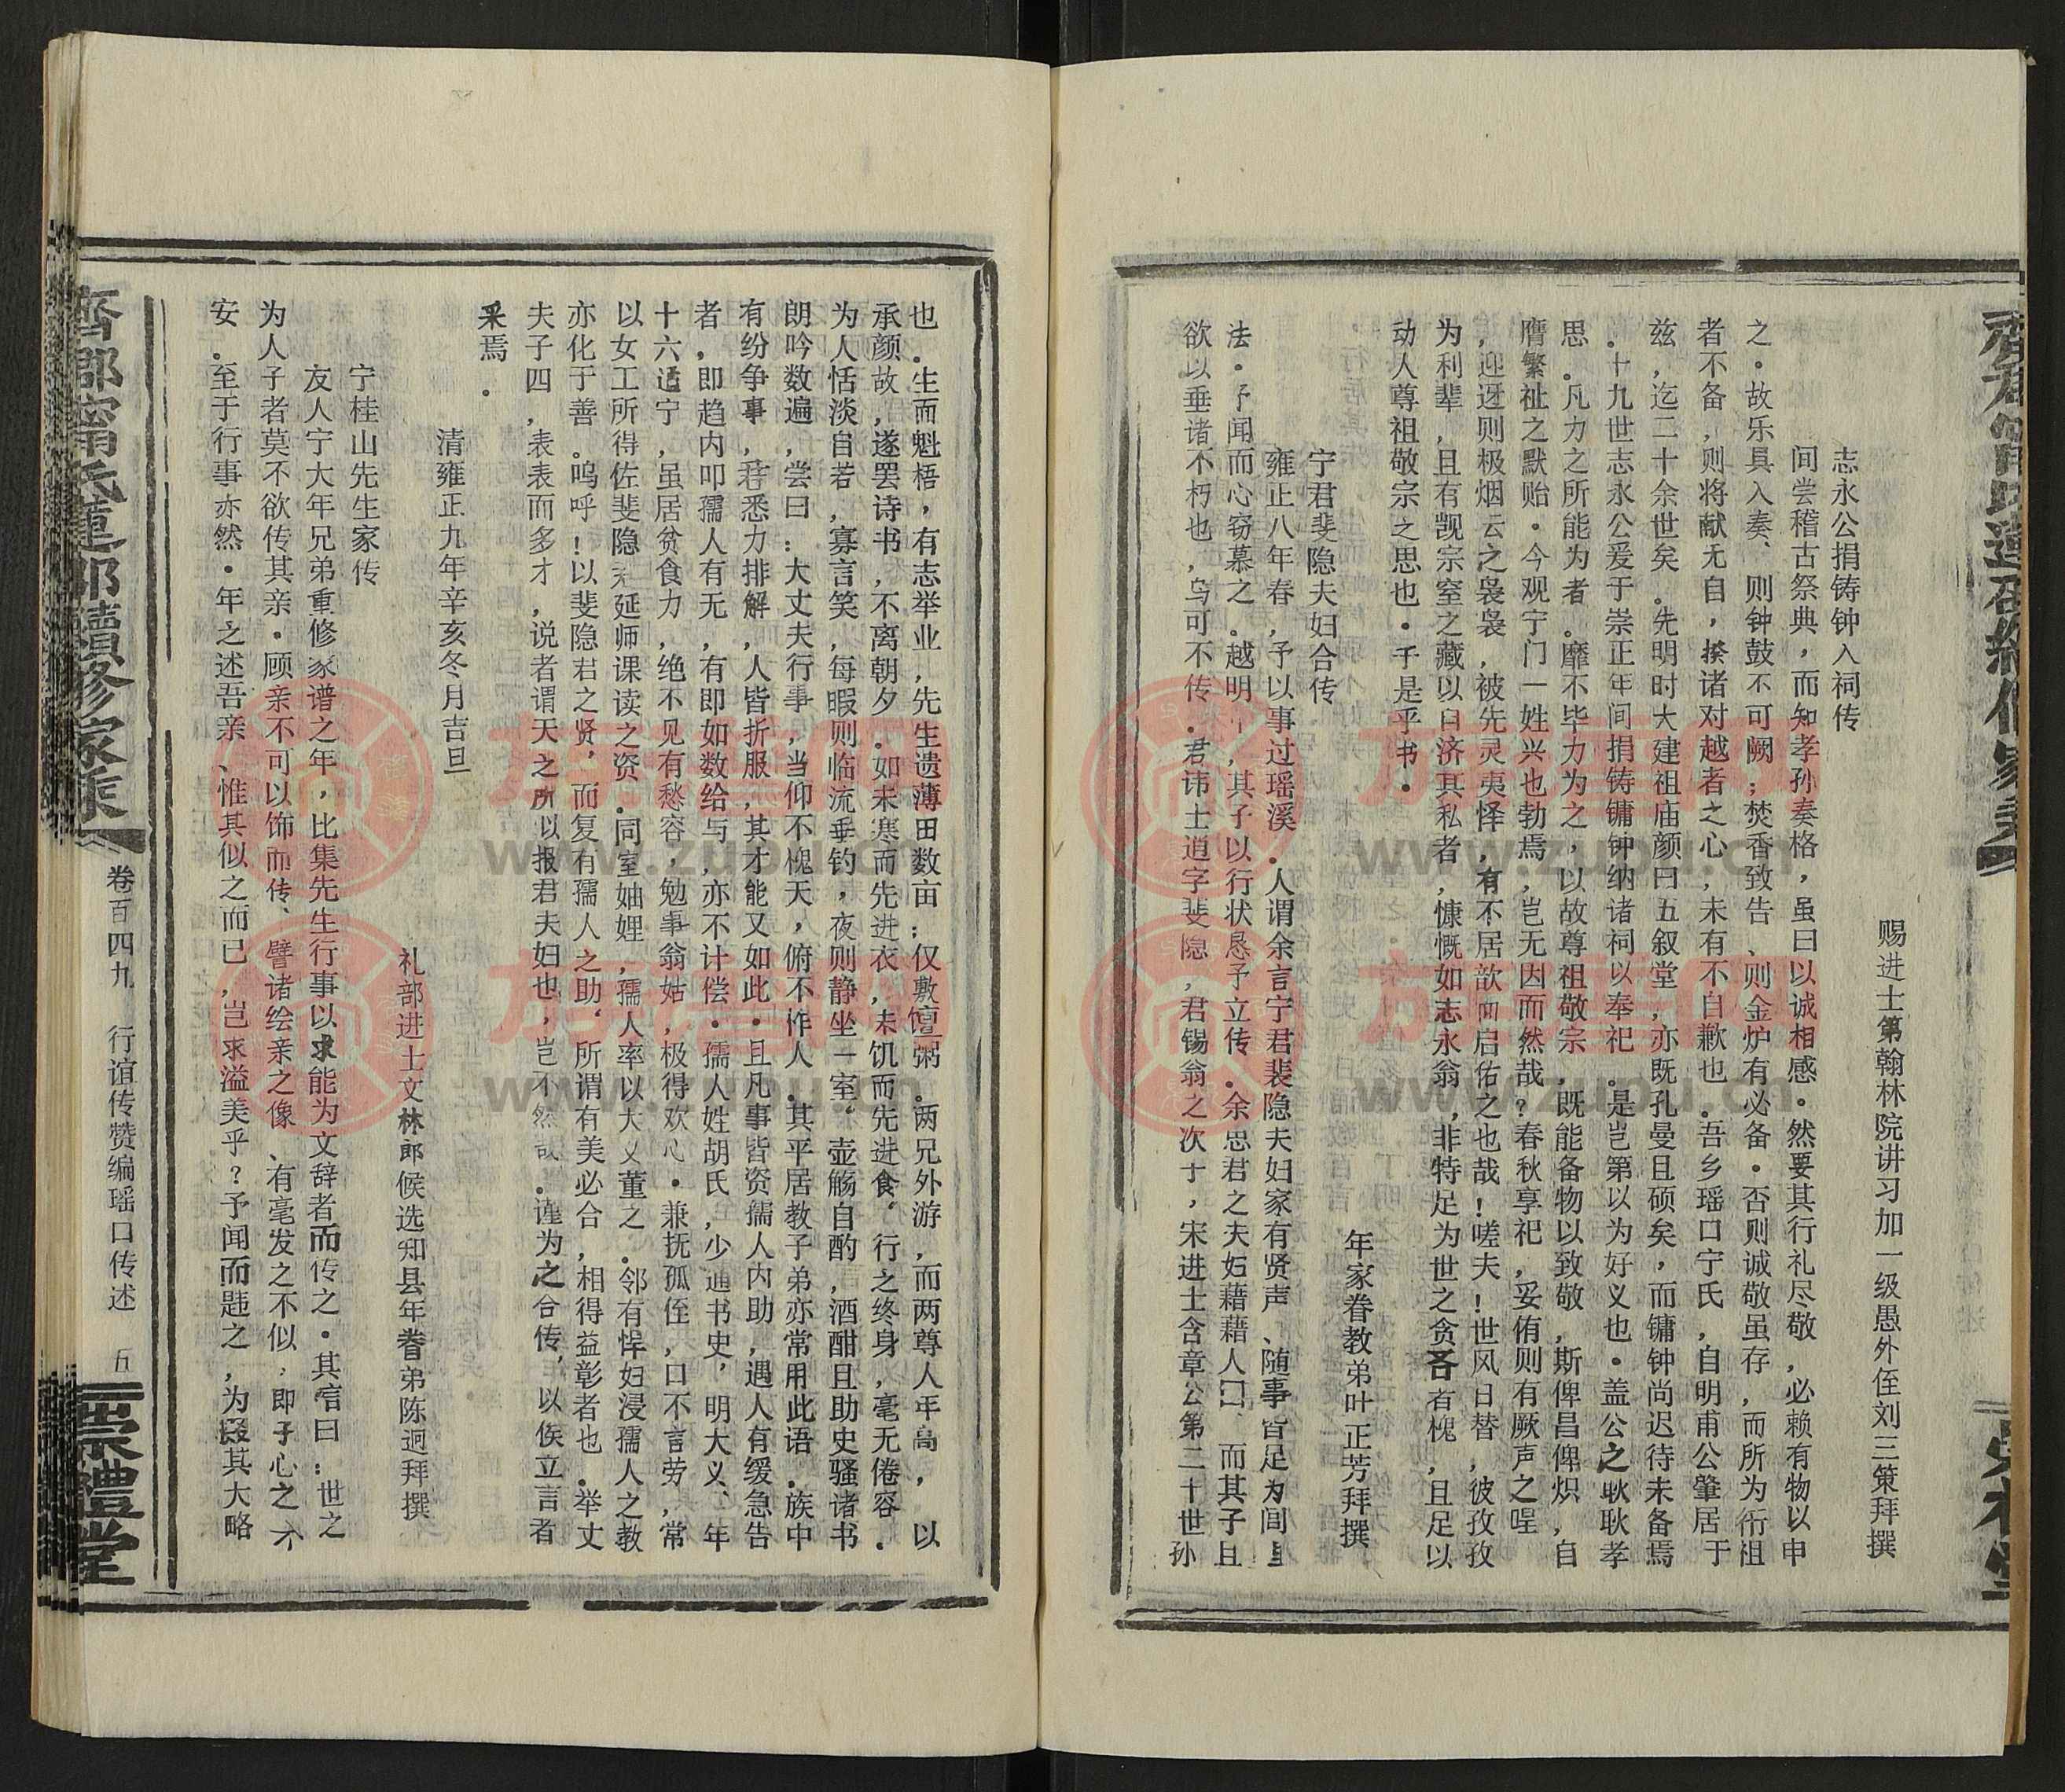 赐进士第翰林院讲习加一级愚外侄刘三策拜撰
志永公捐铸钟入祠传
间尝稽古祭典，而知孝孙奏格，虽曰以诚相感．然要其行礼尽敬，必赖有物以申
之．故乐具入奏、则钟鼓不可阙；焚香致告、则金炉有必备．否则诚敬虽存，而所为衎祖
者不备，则将献无自，揆诸对越者之心，未有不自歉也．吾乡瑶口宁氏，自明甫公肇居于
兹，迄二十余世矣．先明时大建祖庙颜曰五叙堂，亦既孔曼且硕矣，而镛钟尚迟待未备焉
．十九世志永公爰于崇正年间捐铸镛钟纳诸祠以奉祀．是岂第以为好义也．盖公之耿耿孝
思．凡力之所能为者．靡不毕力为之，以故尊祖敬宗，既能备物以致敬，斯俾昌俾炽，自
膺繁祉之默贻．今观宁门一姓兴也勃焉，岂无因而然哉？春秋享祀，妥侑则有厥声之喤
，迎迓则极烟云之袅袅，被先灵夷怿，有不居歆而启佑之也哉！嗟夫！世风日替，彼孜孜
为利辈，且有觊宗室之藏以自济其私者，慷慨如志永翁，非特足为世之贪吝者愧，且足以
动人尊祖敬宗之思也．于是乎书．
年家眷教弟叶正芳拜撰
宁君斐隐夫妇合传
雍正八年春，予以事过瑶溪．人谓余言宁君裴隐夫妇家有贤声、随事皆足为闾里
法．予闻而心窃慕之．越明年，其子以行状恳予立传．余思君之夫妇藉藉人口、而其子且
欲以垂诸不朽也，乌可不传．君讳士道字斐隐，君锡翁之次子，宋进士含章公第二十世孙
也．生而魁梧，有志举业，先生遗薄田数亩；仅敷饘粥．两兄外游，而两尊人年高，以
承颜故，遂罢诗书，不离朝夕．如未寒而先进衣，未饥而先进食，行之终身，毫无倦容．
为人恬淡自若，寡言笑，每暇则临流垂钓，夜则静坐一室，壶觞自酌，酒酣且助史骚诸书
朗吟数遍，尝曰：大丈夫行事，当仰不愧天，俯不怍人．其平居教子弟亦常用此语．族中
有纷争事，君悉力排解，人皆折服，其才能又如此．且凡事皆资孺人内助，遇人有缓急告
者，即趋内叩孺人有无，有即如数给与，亦不计偿．孺人姓胡氏，少通书史，明大义、年
十六适宁，虽居贫食力，绝不见有愁容，勉事翁姑，极得欢心．兼抚孤侄，口不言劳，常
以女工所得佐斐隐为延师课读之资．同室妯娌，孺人率以大义董之．邻有悍妇浸孺人之教
亦化于善．呜呼！以斐隐君之贤，而复有孺人之助，所谓有美必合，相得益彰者也．举丈
夫子四，表表而多才，说者谓天之所以报君夫妇也，岂不然哉．谨为之合传，以俟立言者
采焉．
清雍正九年辛亥冬月吉旦
礼部进士文林郎候选知县年眷弟陈迥拜撰
宁桂山先生家传
友人宁大年兄弟重修家谱之年，比集先生行事以求能为文辞者而传之．其官曰：世之
为人子者莫不欲传其亲．顾亲不可以饰而传、譬诸绘亲之像、有毫发之不似，即子心之不
安．至于行事亦然．年之述吾亲、惟其似之而已，岂求溢美乎？予闻而韪之，为叕其大略
齊郡甯氏蓮邵續修家乘
卷百四九　行谊传赞编瑶口传述　五
崇禮堂
族谱网
www.zupu.cn